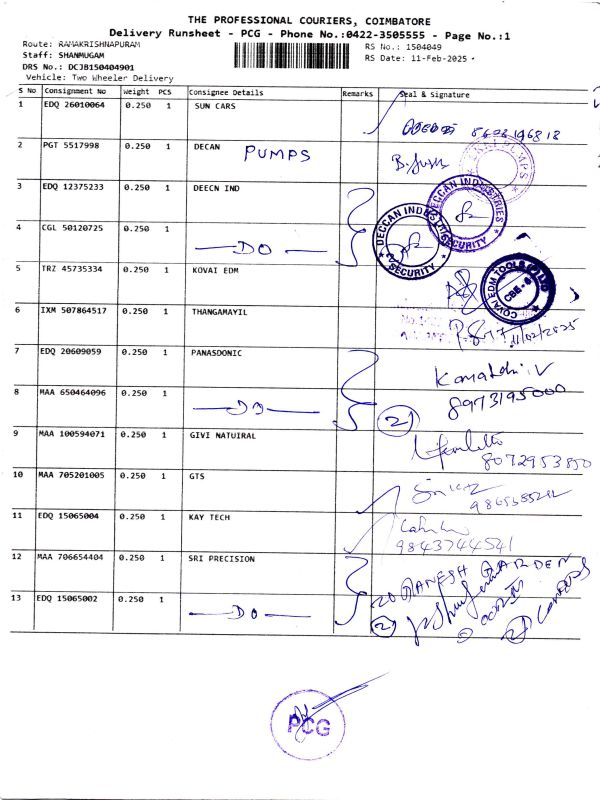 THE PROFESSIONAL COURIERS, COIMBATORE
Delivery Runsheet - PCG - Phone No.:0422-3505555 - Page No.:1
Route: RAMAKRISHNAPURAM
RS No.: 1504049
Staff: SHANMUGAM
RS Date: 11-Feb-2025
DRS No.: DCJB150404901
Vehicle: Two Wheeler Delivery
S No Consignment No Weight PCS Consignee Details Remarks Seal & Signature
1 EDQ 26010064 0.250 1 SUN CARS
2 PGT 5517998 0.250 1 DECAN PUMPS
3 EDQ 12375233 0.250 1 DEECN IND
DECCAN INDUSTRIES
SECURITY
DECCAN INDUSTRIES
SECURITY
4 CGL 50120725 0.250 1 — DO —
5 TRZ 45735334 0.250 1 KOVAI EDM
COVAI EDM TOOLS (P) LTD
CBE - 6
6 IXM 507864517 0.250 1 THANGAMAYIL
11/02/2025
7 EDQ 20609059 0.250 1 PANASDONIC
Kamatchi. V
8 MAA 650464096 0.250 1 — DO —
2)
8973195000
9 MAA 100594071 0.250 1 GIVI NATUIRAL
8072953850
10 MAA 705201005 0.250 1 GTS
11 EDQ 15065004 0.250 1 KAY TECH
9843744541
12 MAA 706654404 0.250 1 SRI PRECISION
20 GANESH GARDEN
13 EDQ 15065002 0.250 1 — DO —
2)
PCG